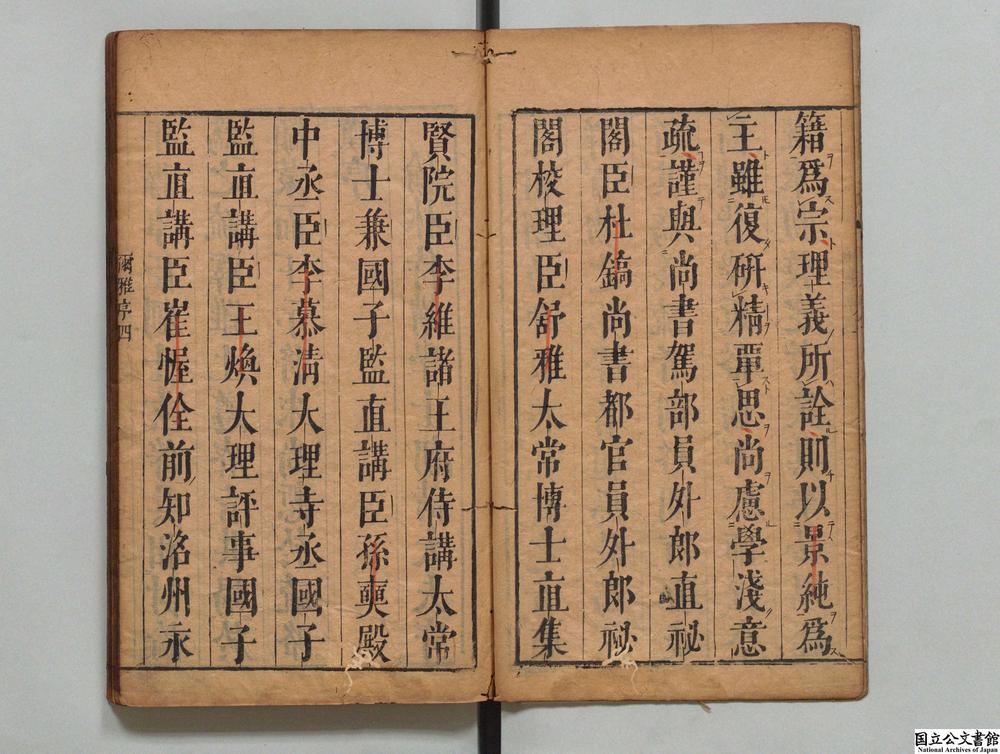 籍爲宗理義所詮則以景純爲
主雖復研精覃思尚慮學淺意
疏謹與尚書駕部員外郎直祕
閣臣杜鎬尚書都官員外郎祕
閣校理臣舒雅太常博士直集
賢院臣李維諸王府侍講太常
博士兼國子監直講臣孫奭殿
中丞臣李慕清大理寺丞國子
監直講臣王煥大理評事國子
監直講臣崔偓佺前知洺州永
爾雅序四
国立公文書館
National Archives of Japan